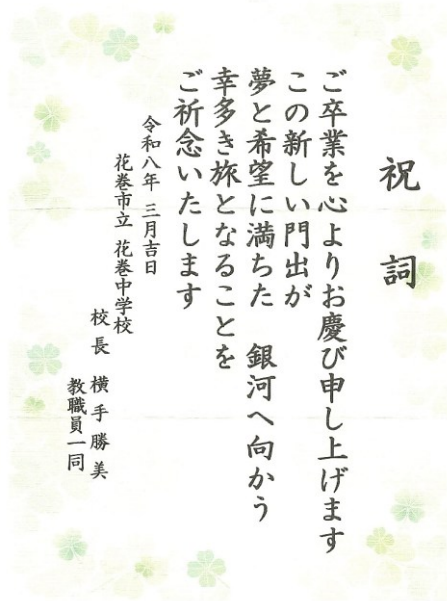 祝詞
ご卒業を心よりお慶び申し上げます
この新しい門出が
夢と希望に満ちた　銀河へ向かう
幸多き旅となることを
ご祈念いたします
令和八年　三月吉日
花巻市立　花巻中学校
校長　横手勝美
教職員一同